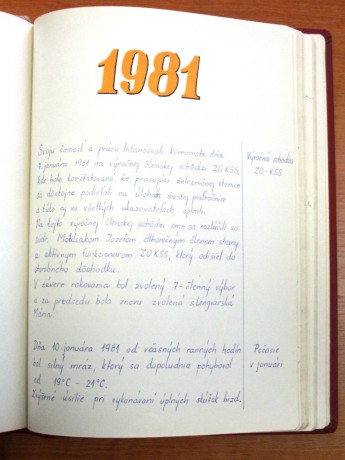 1981
Svoju činnosť a prácu bilancovali komunisti dňa
7. januára 1981 na výročnej členskej schôdzi ZO KSS,
kde bolo konštatované, že pracujúci železničnej stanice
sa dôstojne podieľali na úlohách šiestej päťročnice
a túto aj vo všetkých ukazovateľoch splnili.
Na tejto výročnej členskej schôdzi sme sa rozlúčili so
súdr. Jozefom dlhoročným členom strany
a aktívnym funkcionárom ZO KSS, ktorý odišiel do
osobného dôchodku.
V závere rokovania bol zvolený 7-členný výbor
a za predsedu bola znovu zvolená s.
Mária.
Výročná schôdza
ZO - KSS
Dňa 10. januára 1981 od včasných ranných hodín
bol silný mráz, ktorý sa dopoludnia pohyboval
od 19°C - 21°C.
Zvýšené úsilie pri vykonávaní úplných skúšok bŕzd,
Počasie
v januári